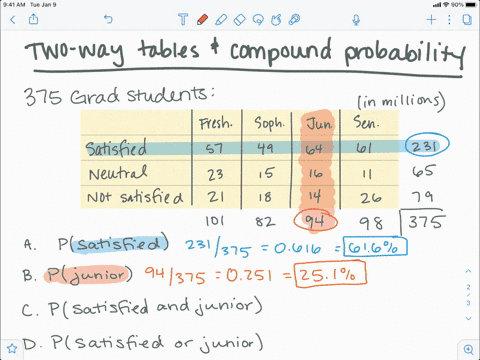 9:41 AM Tue Jan 9
90%
Two-way tables & compound probability
375 Grad students:
(in millions)
Fresh. Soph. Jun. Sen.
Satisfied 57 49 64 61 231
Neutral 23 15 16 11 65
Not satisfied 21 18 14 26 79
101 82 94 98 375
A. P(satisfied) 231/375 = 0.616 = 61.6%
B. P(junior) 94/375 = 0.251 = 25.1%
C. P(satisfied and junior)
D. P(satisfied or junior)
2
3